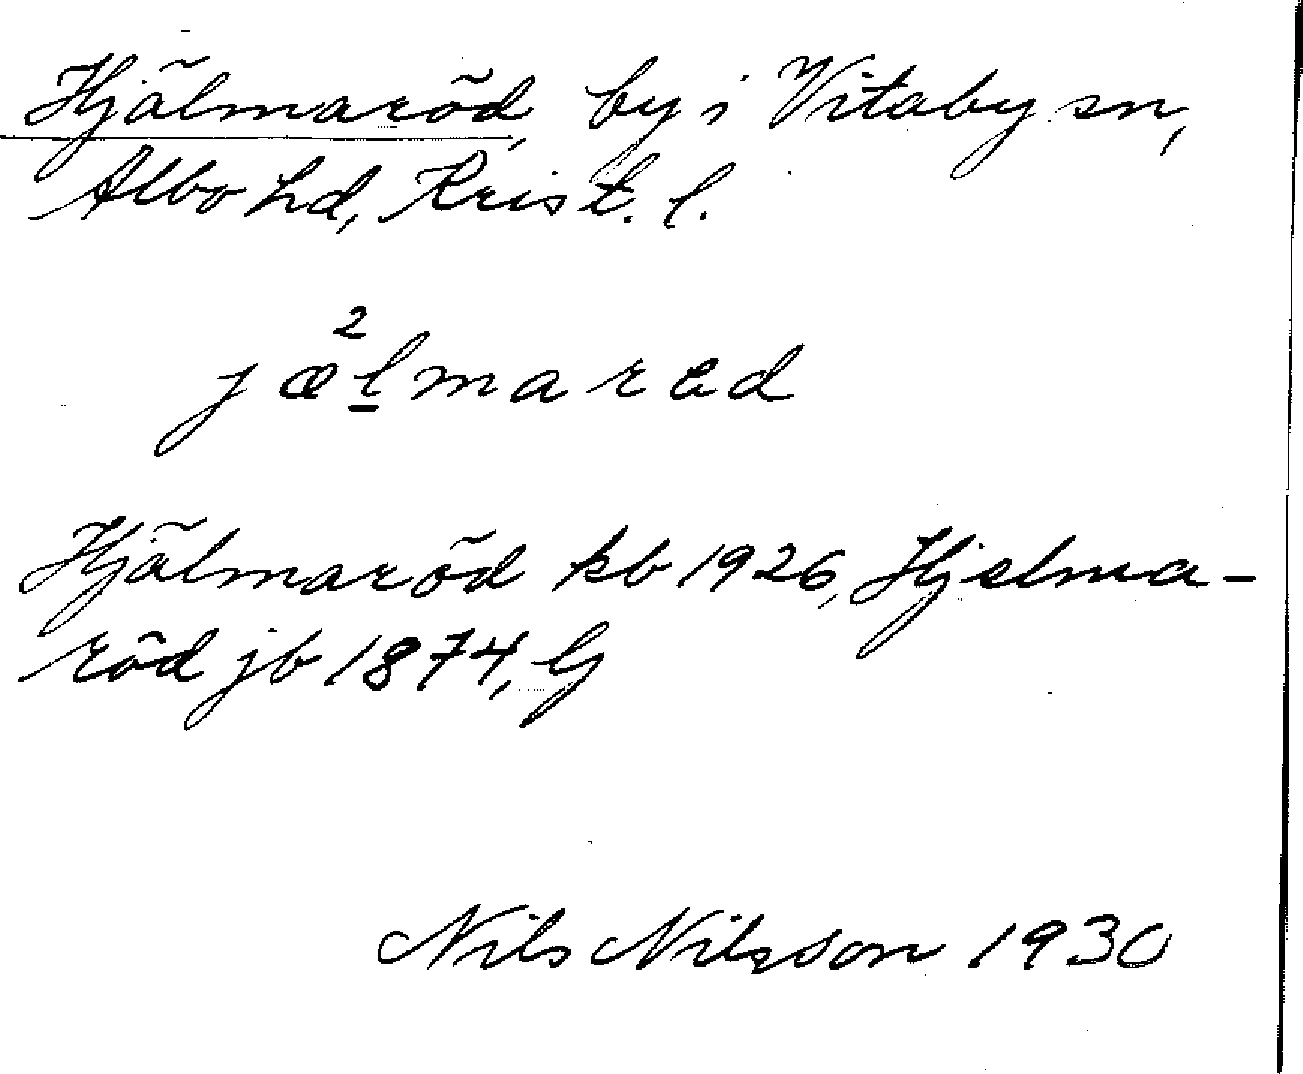 Hjälmaröd, by i Vitaby sn,
Albo hd, Krist. l.
jæ²l̲marad
Hjälmaröd kb 1926, Hjelma-
röd jb 1874, G
Nils Nilsson 1930